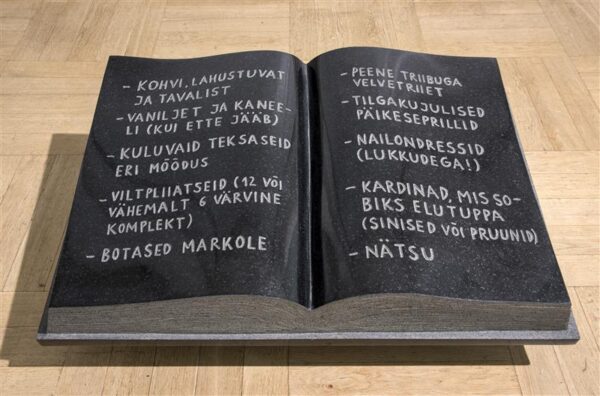 - KOHVI, LAHUSTUVAT
JA TAVALIST
- VANILJET JA KANEE-
LI (KUI ETTE JÄÄB)
- KULUVAID TEKSASEID
ERI MÕÕDUS
- VILTPLIIATSEID (12 VÕI
VÄHEMALT 6 VÄRVINE
KOMPLEKT)
- BOTASED MARKOLE
- PEENE TRIIBUGA
VELVETRIIET
- TILGAKUJULISED
PÄIKESEPRILLID
- NAILONDRESSID
(LUKKUDEGA!)
- KARDINAD, MIS SO-
BIKS ELUTUPPA
(SINISED VÕI PRUUNID)
- NÄTSU